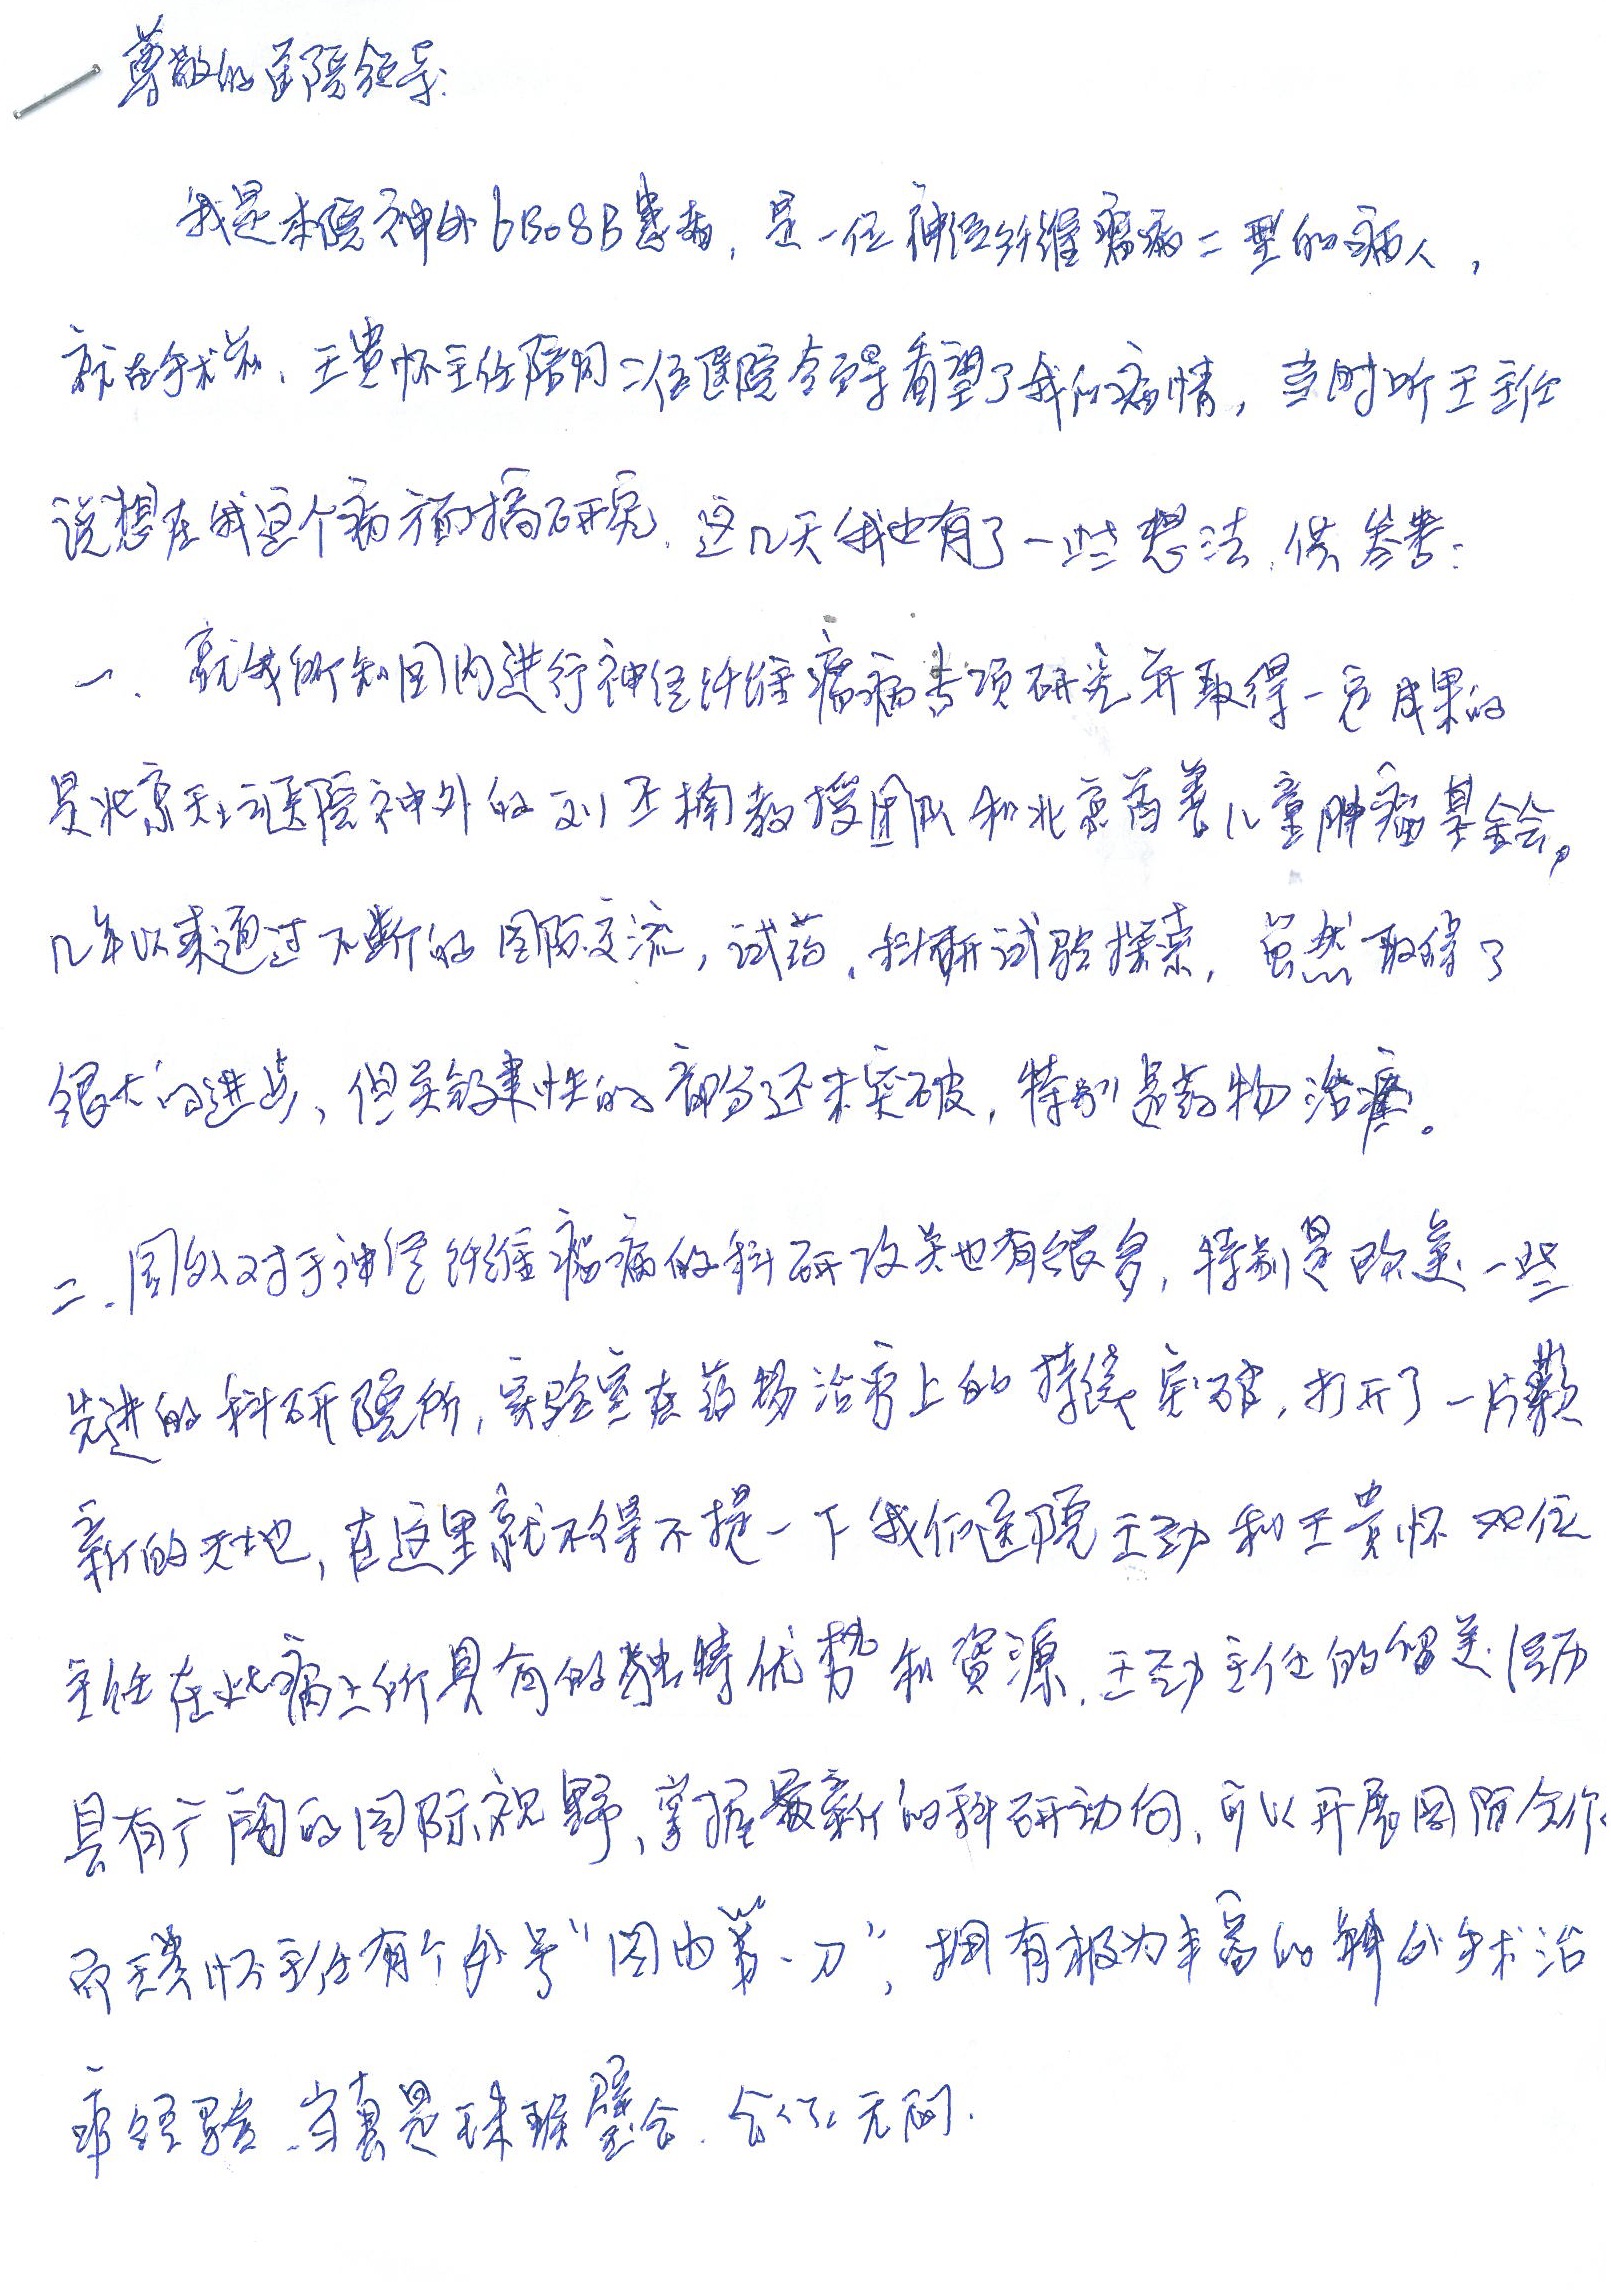 尊敬的医院领导:
我是本院神外6B08B患者,是一位神经纤维瘤病二型的病人,
就在手术前、王贵怀主任陪同二位医院领导看望了我的病情,当时听王主任
说想在我这个病方面搞研究.这几天我也有了一些想法,供参考:
一、就我所知国内进行神经纤维瘤病专项研究并取得一定成果的
是北京天坛医院神外的刘丕楠教授团队和北京首善儿童肿瘤基金会,
几年以来通过不断的国际交流,试药,科研试验探索,虽然取得了
很大的进步,但关键性的部分还未突破,特别是药物治疗。
二.国外对于神经纤维瘤病的科研攻关也有很多,特别是欧美一些
先进的科研院所,实验室在药物治疗上的持续突破,打开了一片颗
新的天地,在这里就不得不提一下我们医院王劲和王贵怀双位
主任在此病上所具有的独特优势和资源.王劲主任的留美经历
具有广阔的国际视野、掌握最新的科研动向,可以开展国际合作.
而王贵怀主任有个外号“国内第一刀”,拥有极为丰富的神外手术治
疗经验.当真是珠联璧合.合作无间.